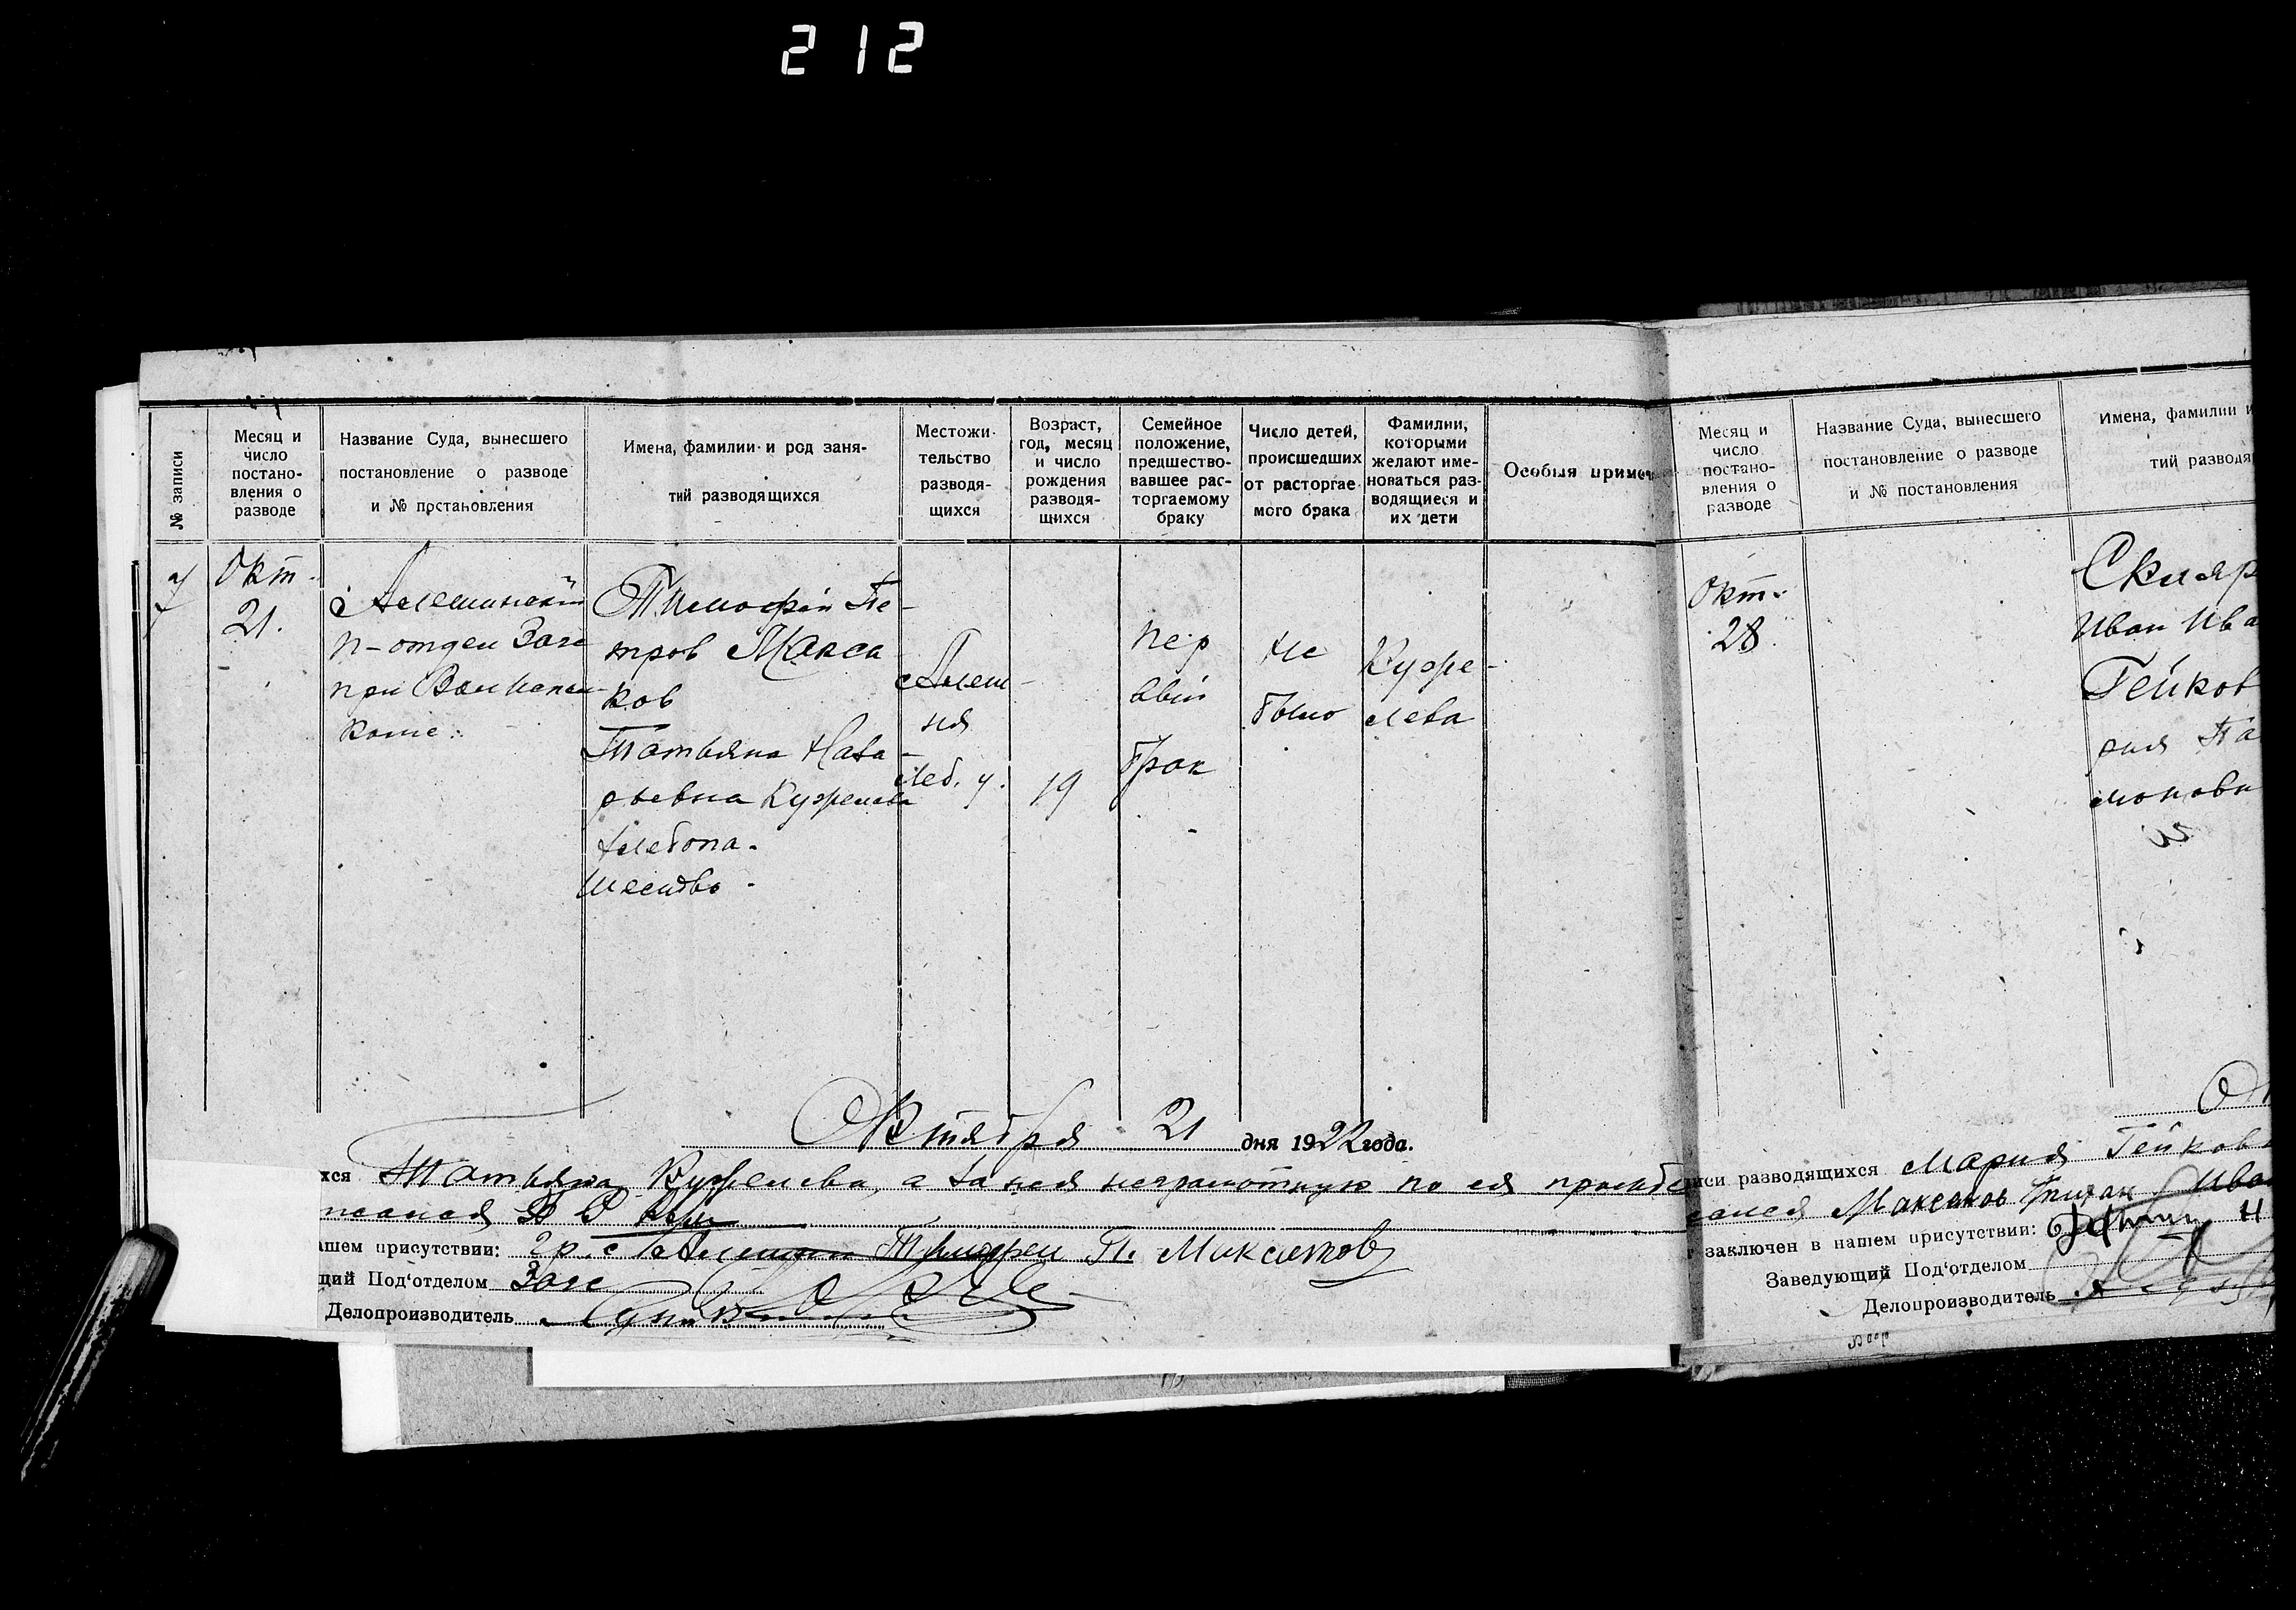 212
№ записи
Месяц и
число
постано-
вления о
разводе
Название Суда, вынесшего
постановление о разводе
и № постановления
Имена, фамилии и род заня-
тий разводящихся
Местожи-
тельство
разводя-
щихся
Возраст,
год, месяц
и число
рождения
разводя-
щихся
Семейное
положение,
предшество-
вавшее рас-
торгаемому
браку
Число детей,
происшедших
от расторгае
мого брака
Фамилии,
которыми
желают име-
новаться раз-
водящиеся и
их дети
Особыя приме
7
Окт.
21.
Алешинский
п-отдел Загс
при
Тимофей Пе-
тров Макса
ков
Татьяна
Кужелева
Хлебопа-
шество
Алеш-
ня
Леб. у.
19
пер
вый
брак
не
было
Куже-
лева
Октября 21 дня 1922 года.
хся Татьяна Кужелева, а за нея неграмотную по ея прозьбе
ашем присутствии: гр. с Тимофей П. Максаков
щий Под'отделом Загс
Делопроизводитель
Месяц и
число
постано-
вления о
разводе
Название Суда, вынесшего
постановление о разводе
и № постановления
Имена, фамилии и
тий разводя
Окт.
28
Скляр
Иван Ива
Гейков
рия Па
моновн
иси разводящихся Мария Гейков
Максаков
заключен в нашем присутствии:
Заведующий Под'отделом
Делопроизводитель